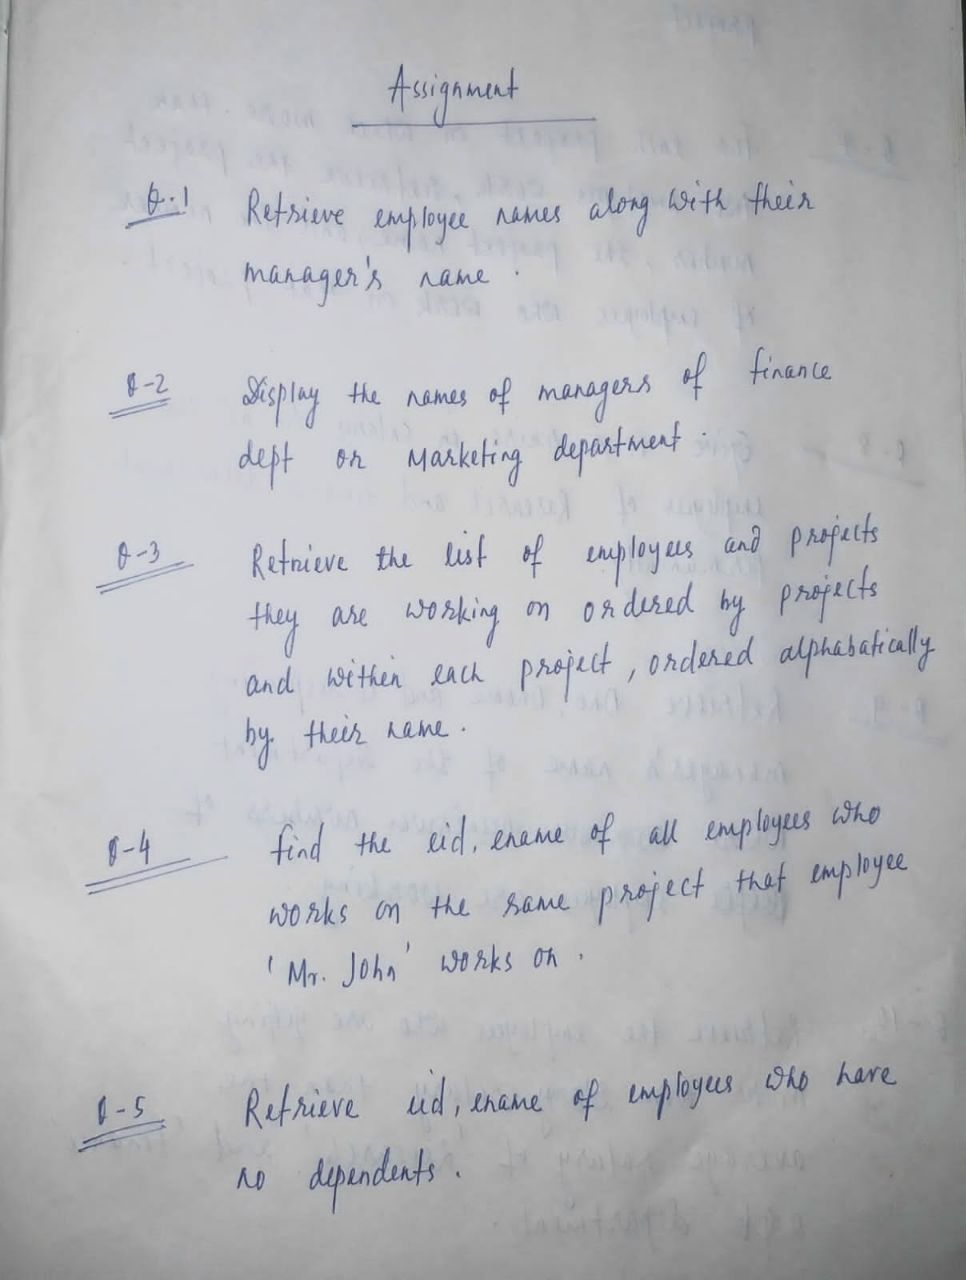 Assignment
Q.1 Retrieve employee names along with their
manager's name.
Q-2 Display the names of managers of finance
dept or Marketing department.
Q-3 Retrieve the list of employees and projects
they are working on ordered by projects
and within each project, ordered alphabatically
by their name.
Q-4 find the eid, ename of all employees who
works on the same project that employee
'Mr. John' works on.
Q-5 Retrieve eid, ename of employees who have
no dependents.